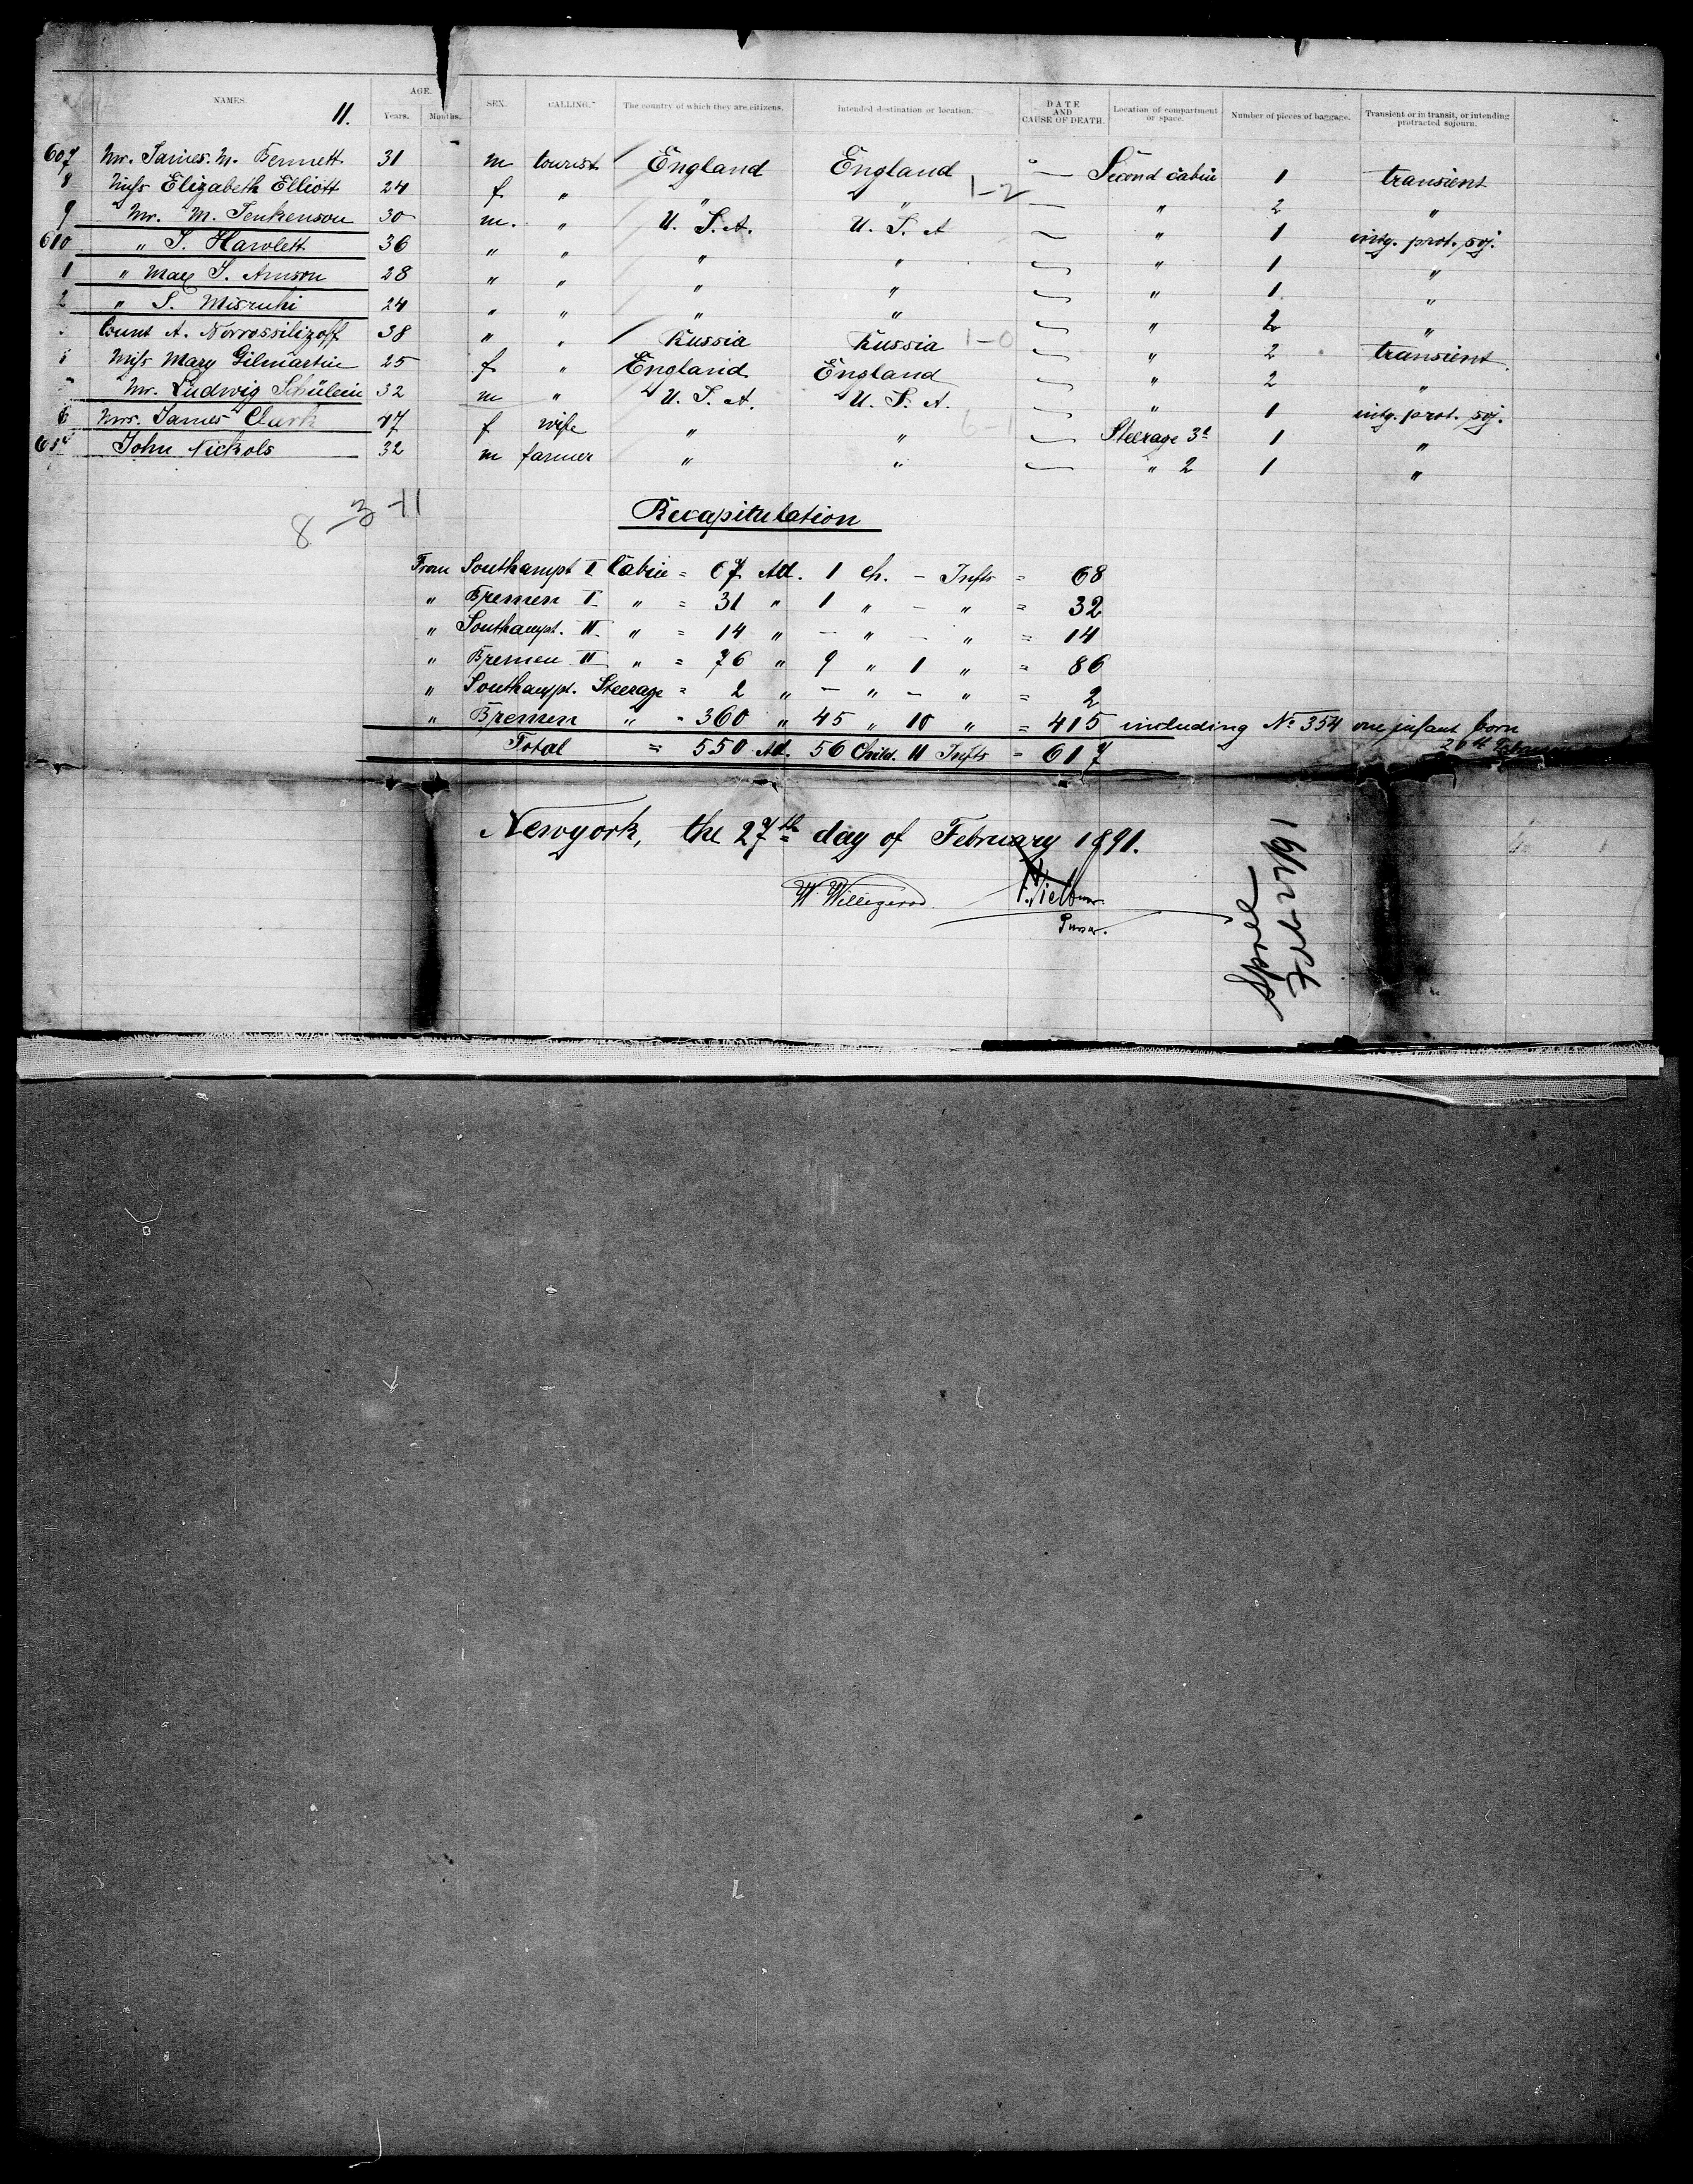 NAMES. 11. AGE. Years. Months. SEX. CALLING. The country of which they are citizens. Intended destination or location. DATE AND CAUSE OF DEATH. Location of compartment or space. Number of pieces of baggage. Transient or in transit, or intending protracted sojourn.
607 Mr. James. M. Bennett 31 m tourist England England — Second cabin 1 transient
8 Miss Elizabeth Elliott 24 f " " " 1-2 — " 2 "
9 Mr. M. Jenkenson 30 m. " U. S. A. U. S. A — " 1 intg. prot. soj.
610 " J. Hawlett 36 " " " " — " 1 "
1 " Max J. Arnson 28 " " " " — " 1 "
2 " S. Misruhi 24 " " " " — " 2 "
Count A. Norrossilizoff 38 " " Russia Russia 1-0 — " 2 transient
Miss Mary Gilmartin 25 f " England England — " 2 "
Mr. Ludwig Schülein 32 m " U. S. A. U. S. A. — " 1 intg. prot. soj.
6 Mrs. James Clark 47 f wife " " — Steerage 3 1 "
John Nickols 32 m farmer " " — " 2 1 "
8-3-11
Recapitulation
From Southampt I Cabin = 67 Ad. 1 Ch. - Infts = 68
" Bremen I " = 31 " 1 " - " = 32
" Southampt. II " = 14 " - " - " = 14
" Bremen II " = 76 " 9 " 1 " = 86
" Southampt. Steerage = 2 " - " - " = 2
" Bremen " = 360 " 45 " 10 " = 415 including No 354 one infant born
20th
Total = 550 Ad. 56 Child. 11 Infts = 617
Newyork, the 27th day of February 1891.
W. Willigerod
Purser.
Spree